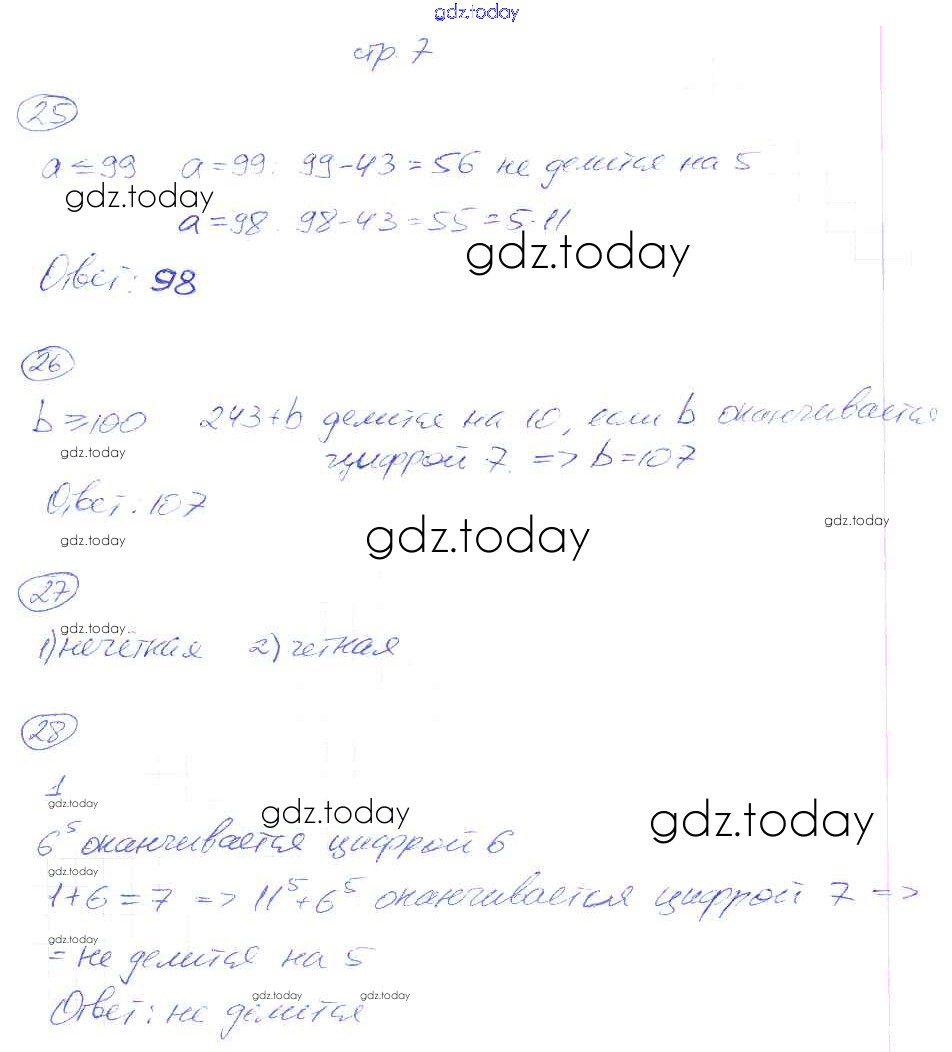 gdz.today
стр. 7
25
a ≤ 99 a = 99: 99-43 = 56 не делится на 5
gdz.today
a = 98. 98-43 = 55 = 5·11
gdz.today
Ответ: 98
26
b ≥ 100 243+b делится на 10, если b оканчивается
gdz.today
цифрой 7. => b = 107
Ответ: 107
gdz.today
gdz.today
gdz.today
27
gdz.today
1) нечётная 2) четная
28
1
gdz.today
gdz.today
gdz.today
6⁵ оканчивается цифрой 6
gdz.today
1+6 = 7 => 11⁵+6⁵ оканчивается цифрой 7 =>
gdz.today
= не делится на 5
gdz.today gdz.today
Ответ: не делится